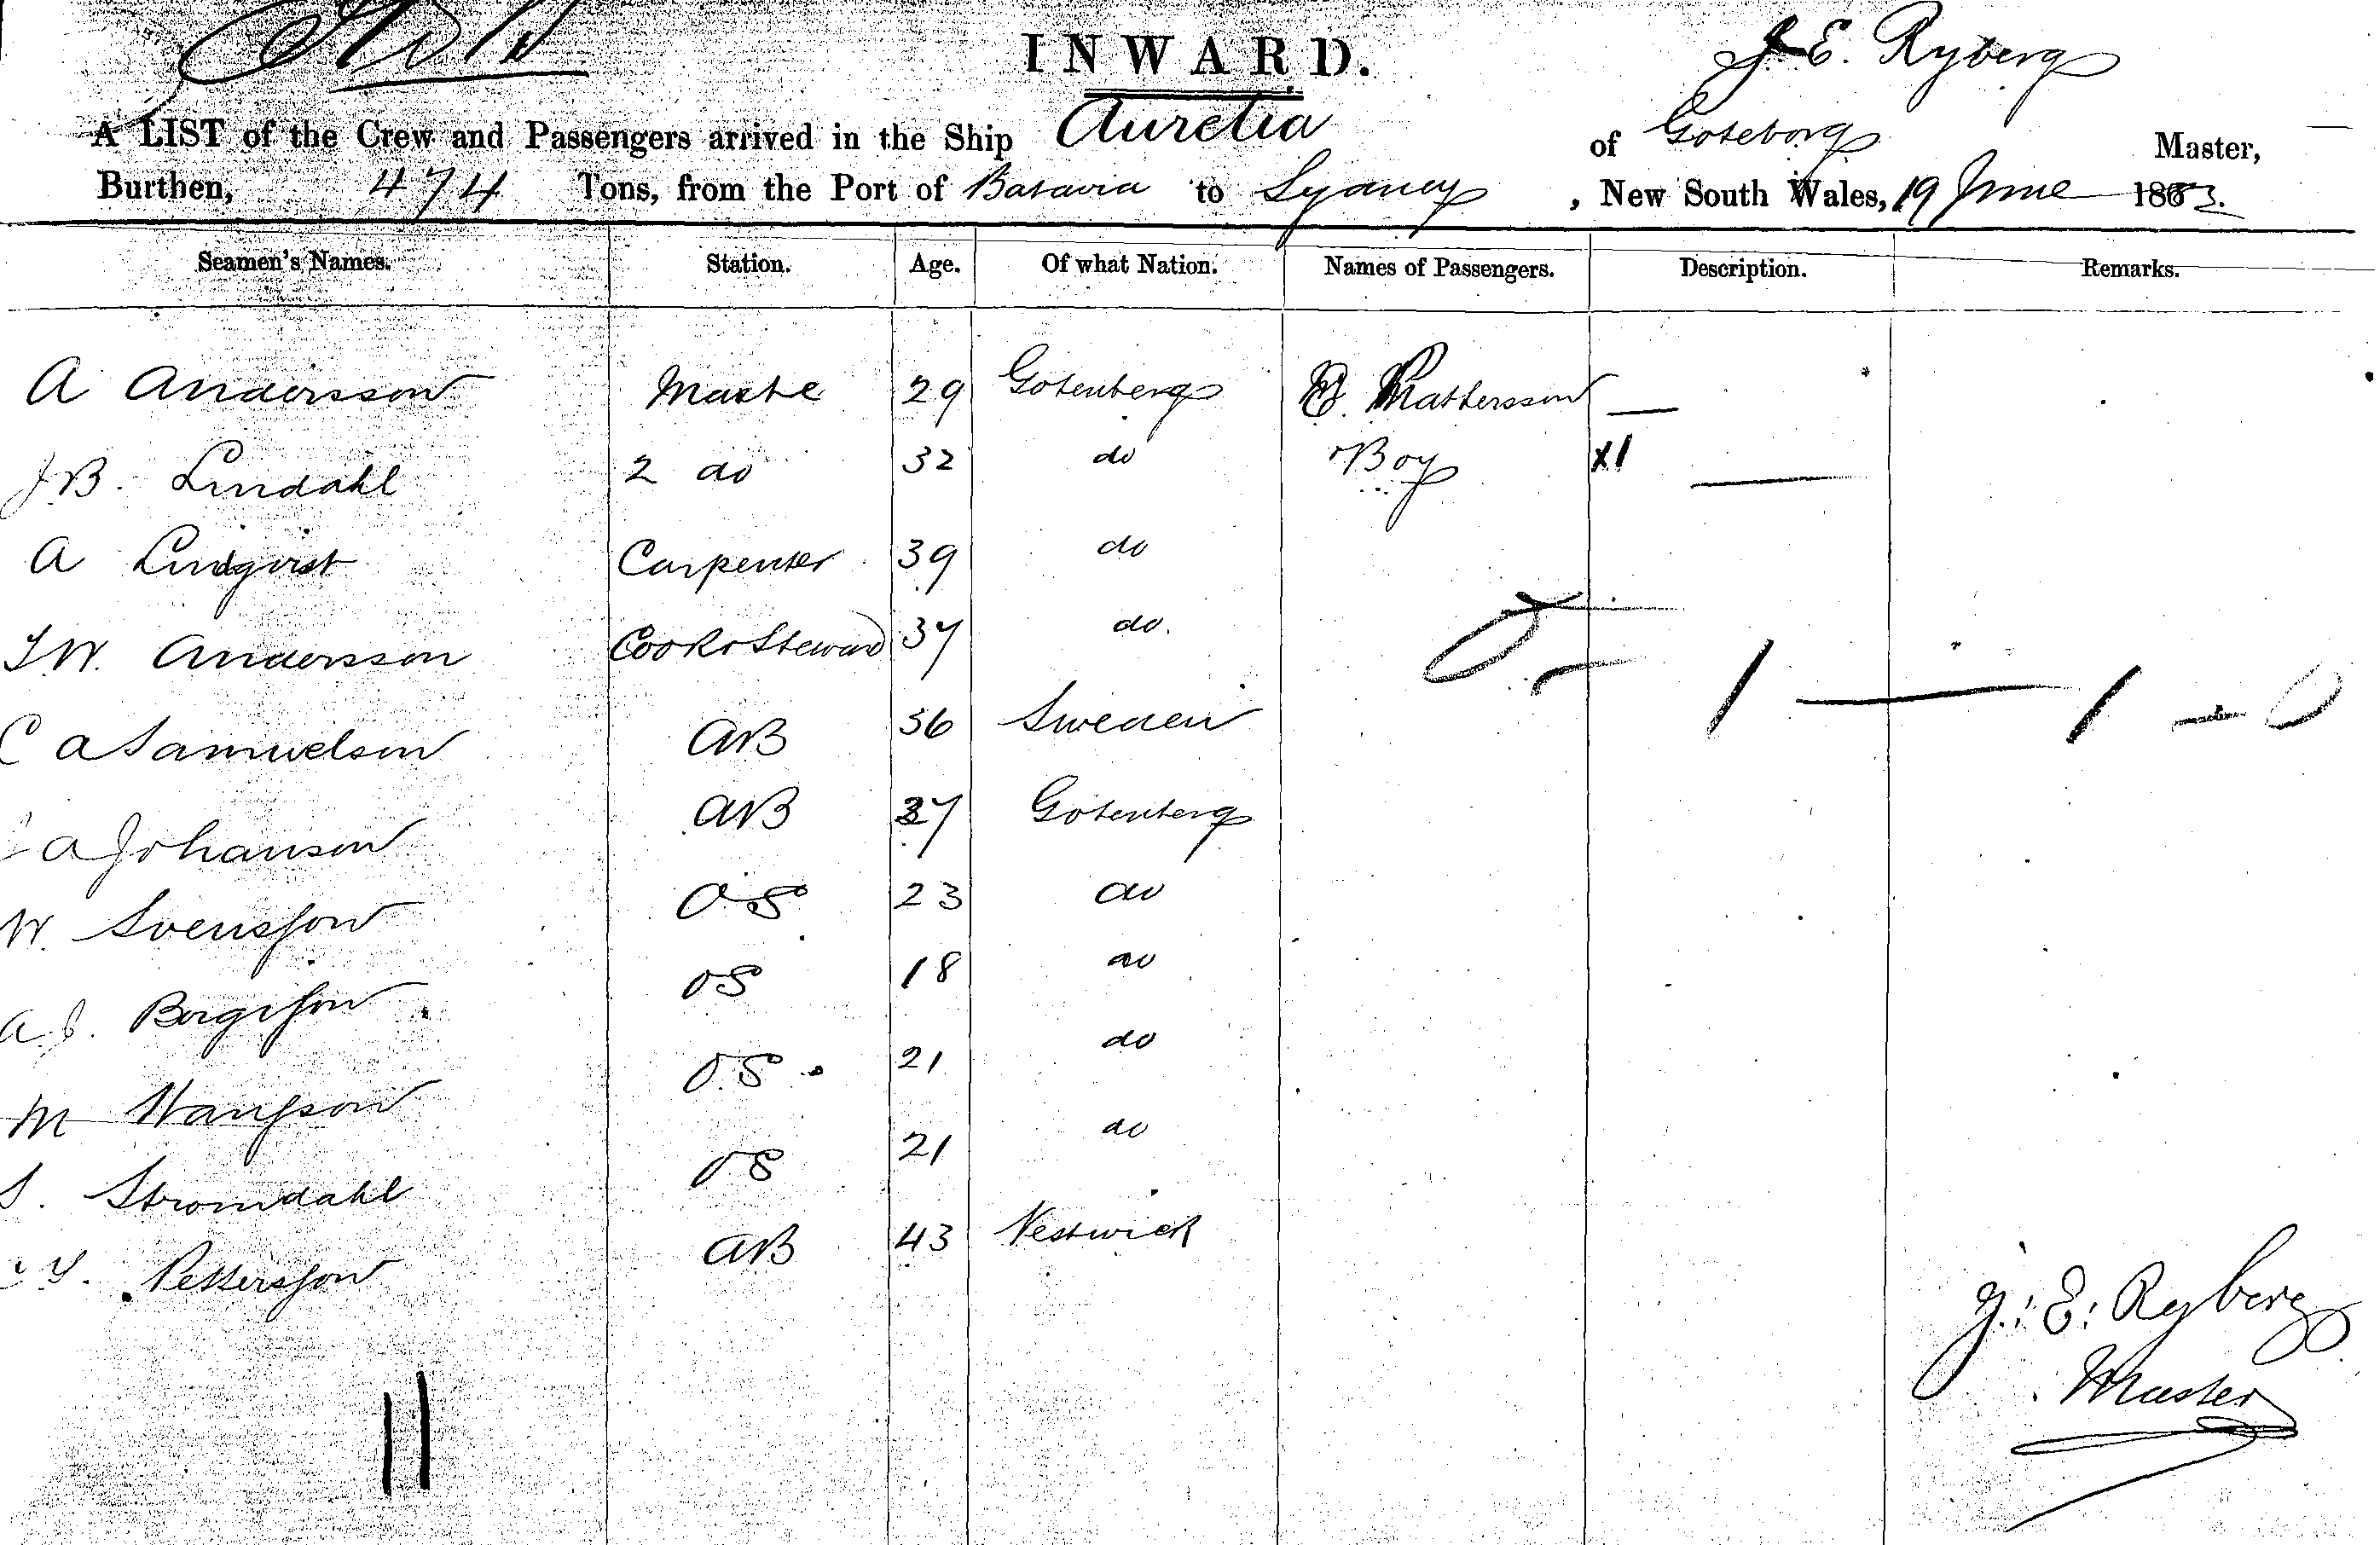 INWARD.
J. E. Ryberg
A LIST of the Crew and Passengers arrived in the Ship Aurelia of Goteborg Master,
Burthen, 474 Tons, from the Port of Batavia to Sydney, New South Wales, 19 June 1883.
Seamen's Names. Station. Age. Of what Nation. Names of Passengers. Description. Remarks.
A Andersson Maate 29 Gotenberg Mattersson —
J B. Lindahl 2 do 32 do Boy X1 —
A Lindqvist Carpenter 39 do
J W. Andersson Cook & Steward 37 do.
C A Samuelson AB 36 Sweden
A Johanson AB 37 Gotenberg
W. Svensson OS 23 do
A. Borgesson OS 18 do
M Hansson O.S. 21 do
S. Stromdahl OS 21 do
Pettersson AB 43 Vestwick
1 — 1 - 0
11
J: E: Ryberg
Master